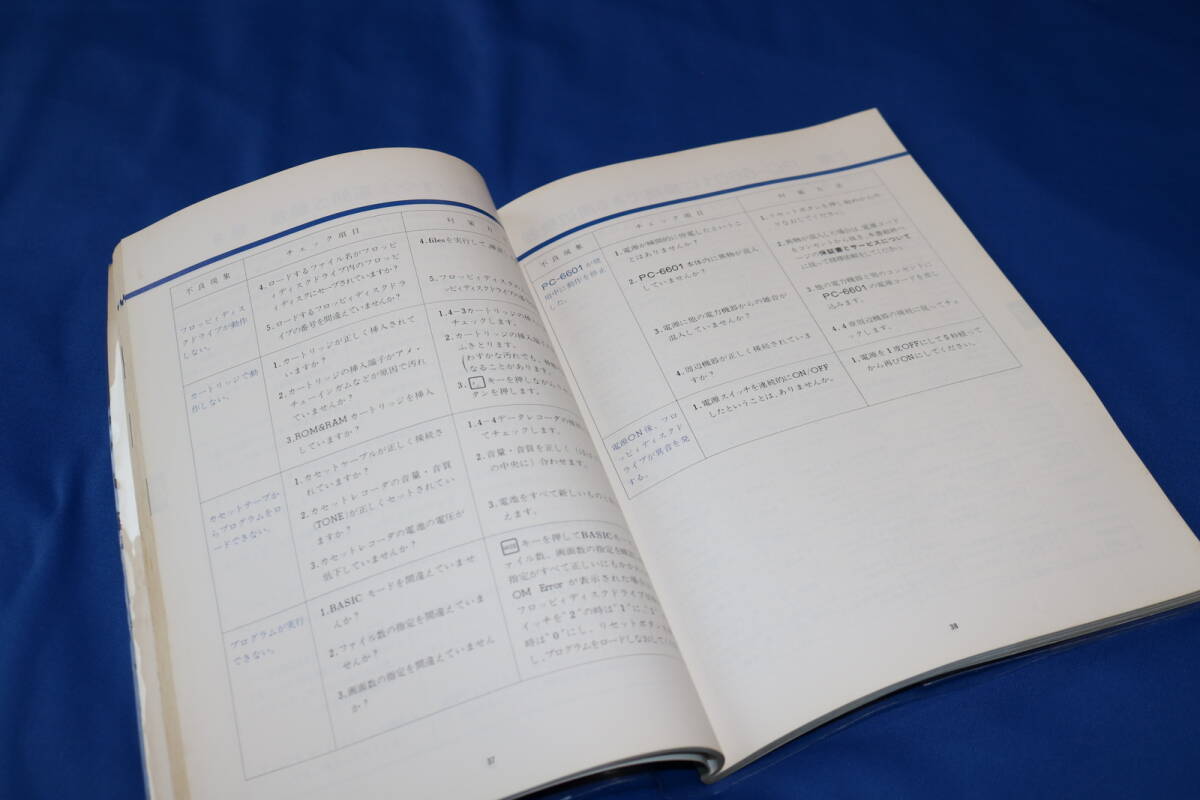 不良現象
チェック項目
フロッピィディス
クドライブが動作
しない。
4.ロードするファイル名がフロッピ
ィディスクドライブ内のフロッピ
ィディスクにセーブされていますか？
5.ロードするフロッピィディスクドラ
イブの番号を間違えていませんか？
4.filesを実行して
5.フロッピィディスクの
ッピィディスクドライブの
カートリッジで動
作しない。
1.カートリッジが正しく挿入されて
いますか？
2.カートリッジの挿入端子がアメ・
チューインガムなどが原因で汚れ
ていませんか？
3.ROM&RAMカートリッジを挿入
していますか？
1.4-3カートリッジの
チェックします。
2.カートリッジの挿入端子
ふきとります。
(わずかな汚れでも、
なることがあります。
3.
キーを押しながら
タンを押します。
カセットテープか
らプログラムをロ
ードできない。
1.カセットケーブルが正しく接続さ
れていますか？
2.カセットレコーダの音量・音質
(TONE)が正しくセットされてい
ますか？
3.カセットレコーダの電池の電圧が
低下していませんか？
1.4-4データレコーダの接続
てチェックします。
2.音量・音質を正しく
の中央に）合わせます。
3.電池をすべて新しいもの
えます。
プログラムが実行
できない。
1.BASICモードを間違えていませ
んか？
2.ファイル数の指定を間違えていま
せんか？
3.画面数の指定を間違えていません
か？
キーを押してBASICモー
ァイル数、画面数の指定を
指定がすべて正しいにもかか
OM Errorが表示された場
フロッピィディスクドライブ
イッチを"2"の時は"1"に、
時は"0"にし、リセットボタン
し、プログラムをロードしなおして
37
不良現象
チェック項目
対策方法
PC-6601が使
用中に動作を停止
した。
1.電源が瞬間的に停電したというこ
とはありませんか？
2.PC-6601本体内に異物が混入
していませんか？
3.電源に他の電力機器からの雑音が
混入していませんか？
4.周辺機器が正しく接続されていま
すか？
1.リセットボタンを押し始めからや
りなおしてください。
2.異物が混入した場合は、電源コード
をコンセントから抜き、本書最終ペ
ージの保証書とサービスについて
に従って修理依頼をしてください。
3.他の電力機器と別のコンセントに
PC-6601の電源コードを差し
込みます。
4.4章周辺機器の接続に従ってチェ
ックします。
電源ON後、フロ
ッピィディスクド
ライブが異音を発
する。
1.電源スイッチを連続的にON/OFF
したということは、ありませんか。
1.電源を1度OFFにして5秒経って
から再びONにしてください。
38